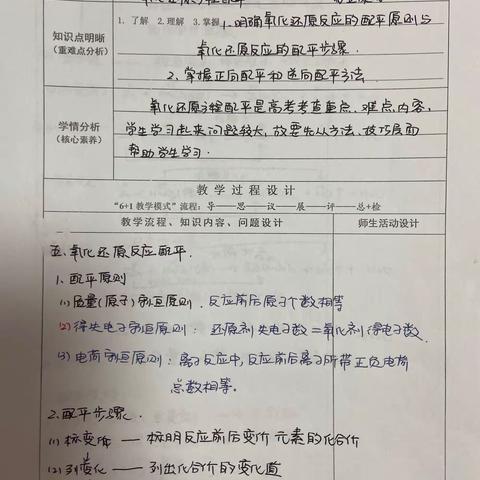 知识点明晰
(重难点分析)
1. 了解 2.理解 3.掌握 1. 明确氧化还原反应的配平原则与
氧化还原反应的配平步骤.
2、掌握正向配平和逆向配平方法
学情分析
(核心素养)
氧化还原方程配平是高考考查重点、难点内容,
学生学习起来问题较大,故要先从方法、技巧层面
帮助学生学习.
教 学 过 程 设 计
“6+1教学模式”流程:导——思——议——展——评——总+检
教学流程、知识内容、问题设计
师生活动设计
五、氧化还原反应配平.
1、配平原则
(1)质量(原子)守恒原则. 反应前后原子个数相等
(2)得失电子守恒原则: 还原剂失电子数=氧化剂得电子数.
(3)电荷守恒原则:离子反应中,反应前后离子所带正负电荷
总数相等.
2.配平步骤.
(1)标变价 —— 标明反应前后变价元素的化合价
(2)列变化 —— 列出化合价的变化值